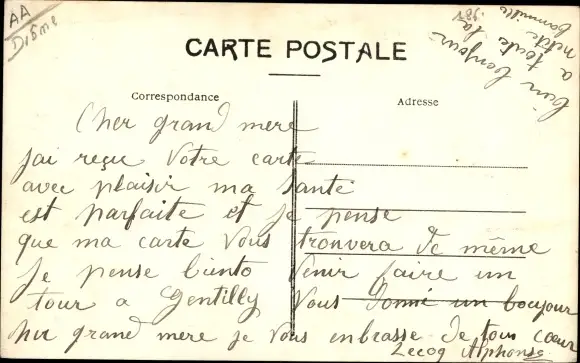 AA
Drôme
bien bonjour
a toute la
petite
fammille
CARTE POSTALE
Correspondance
Adresse
Cher grand mere
jai reçue votre carte
avec plaisir ma santé
est parfaite et je pense
que ma carte vous tronvera de même
Je pense biento venir faire un
tour a Gentilly vous donné un boujour
cher grand mere je vous enbrasse de tout cœur
Lecoq Alphonse